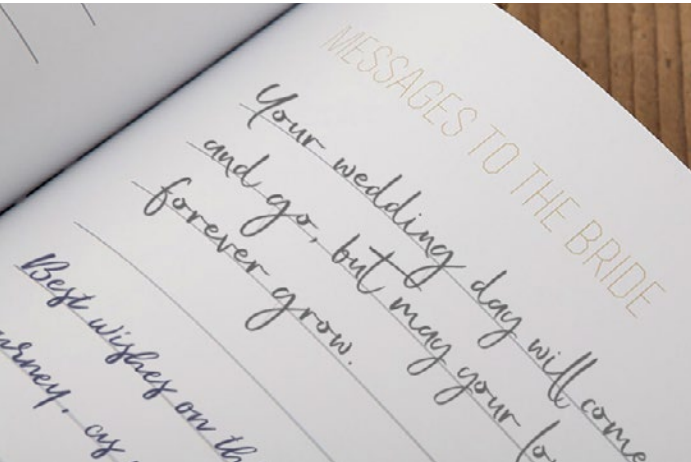 MESSAGES TO THE BRIDE
Your wedding day will come
and go, but may your
forever grow.
Best wishes on